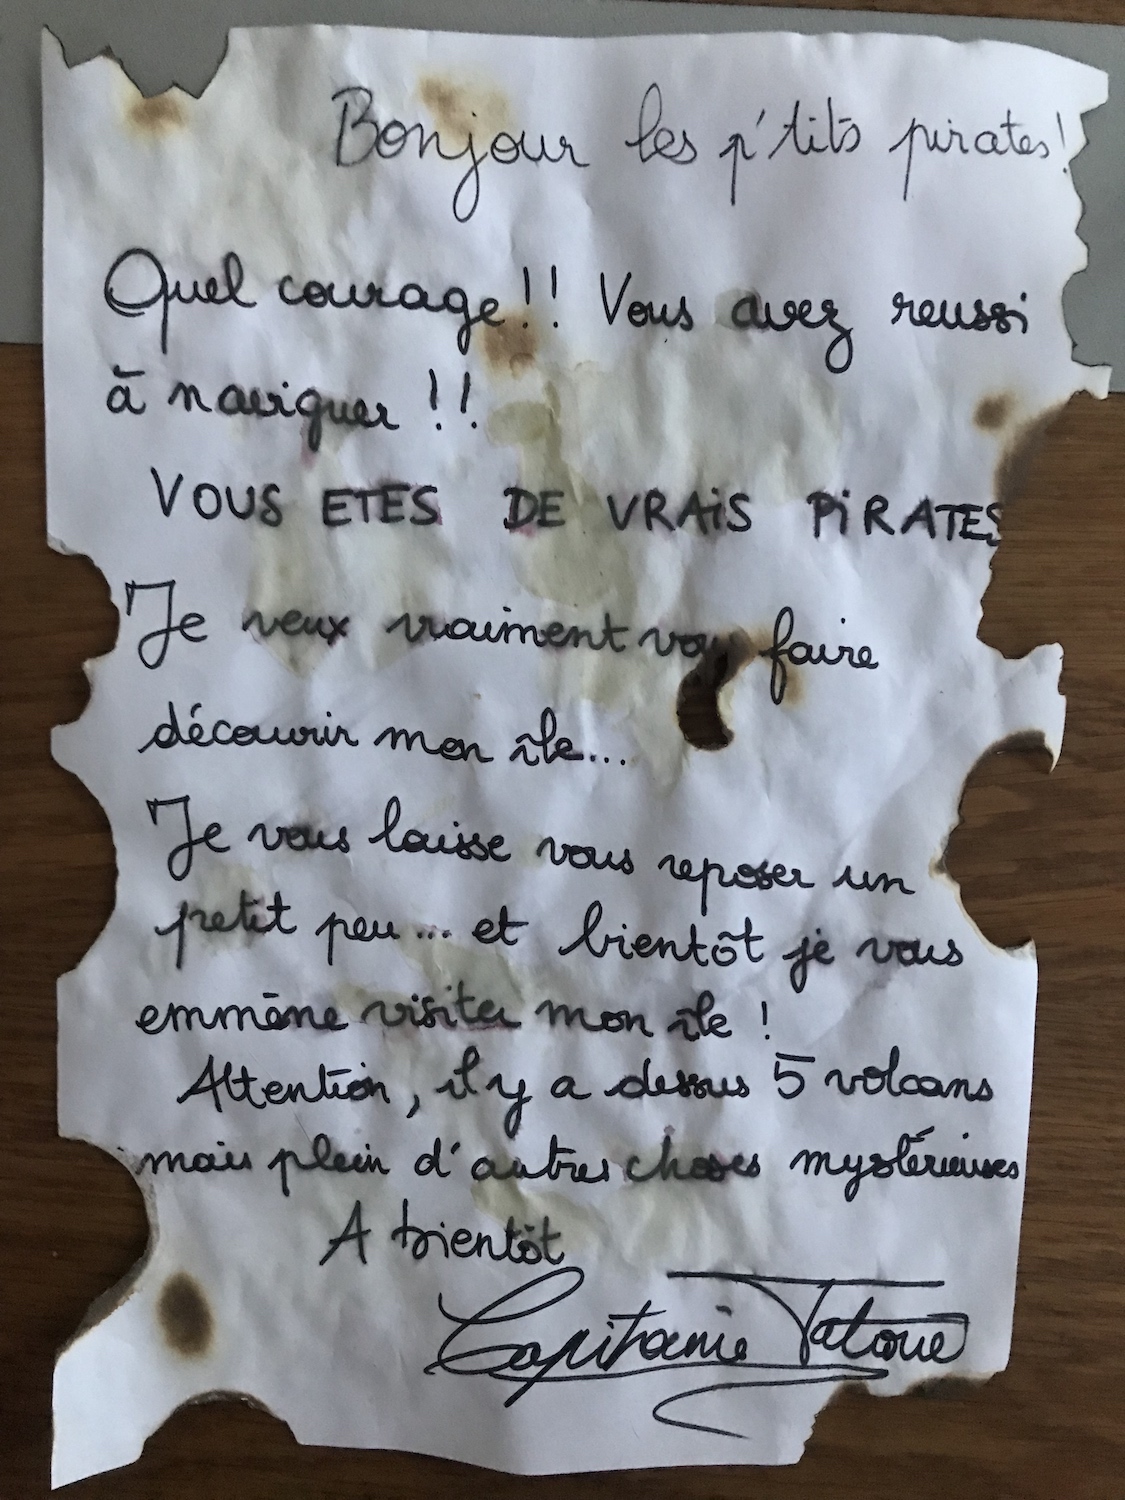 Bonjour les p'tits pirates!
Quel courage!! Vous avez reussi
à naviguer !!
VOUS ETES DE VRAiS PiRATES
Je veux vraiment vous faire
découvrir mon île...
Je vous laisse vous reposer un
petit peu... et bientôt je vous
emmène visiter mon île !
Attention, il y a dessus 5 volcans
mais plein d'autres choses mystérieuses
A bientôt
Capitanie Tatoue